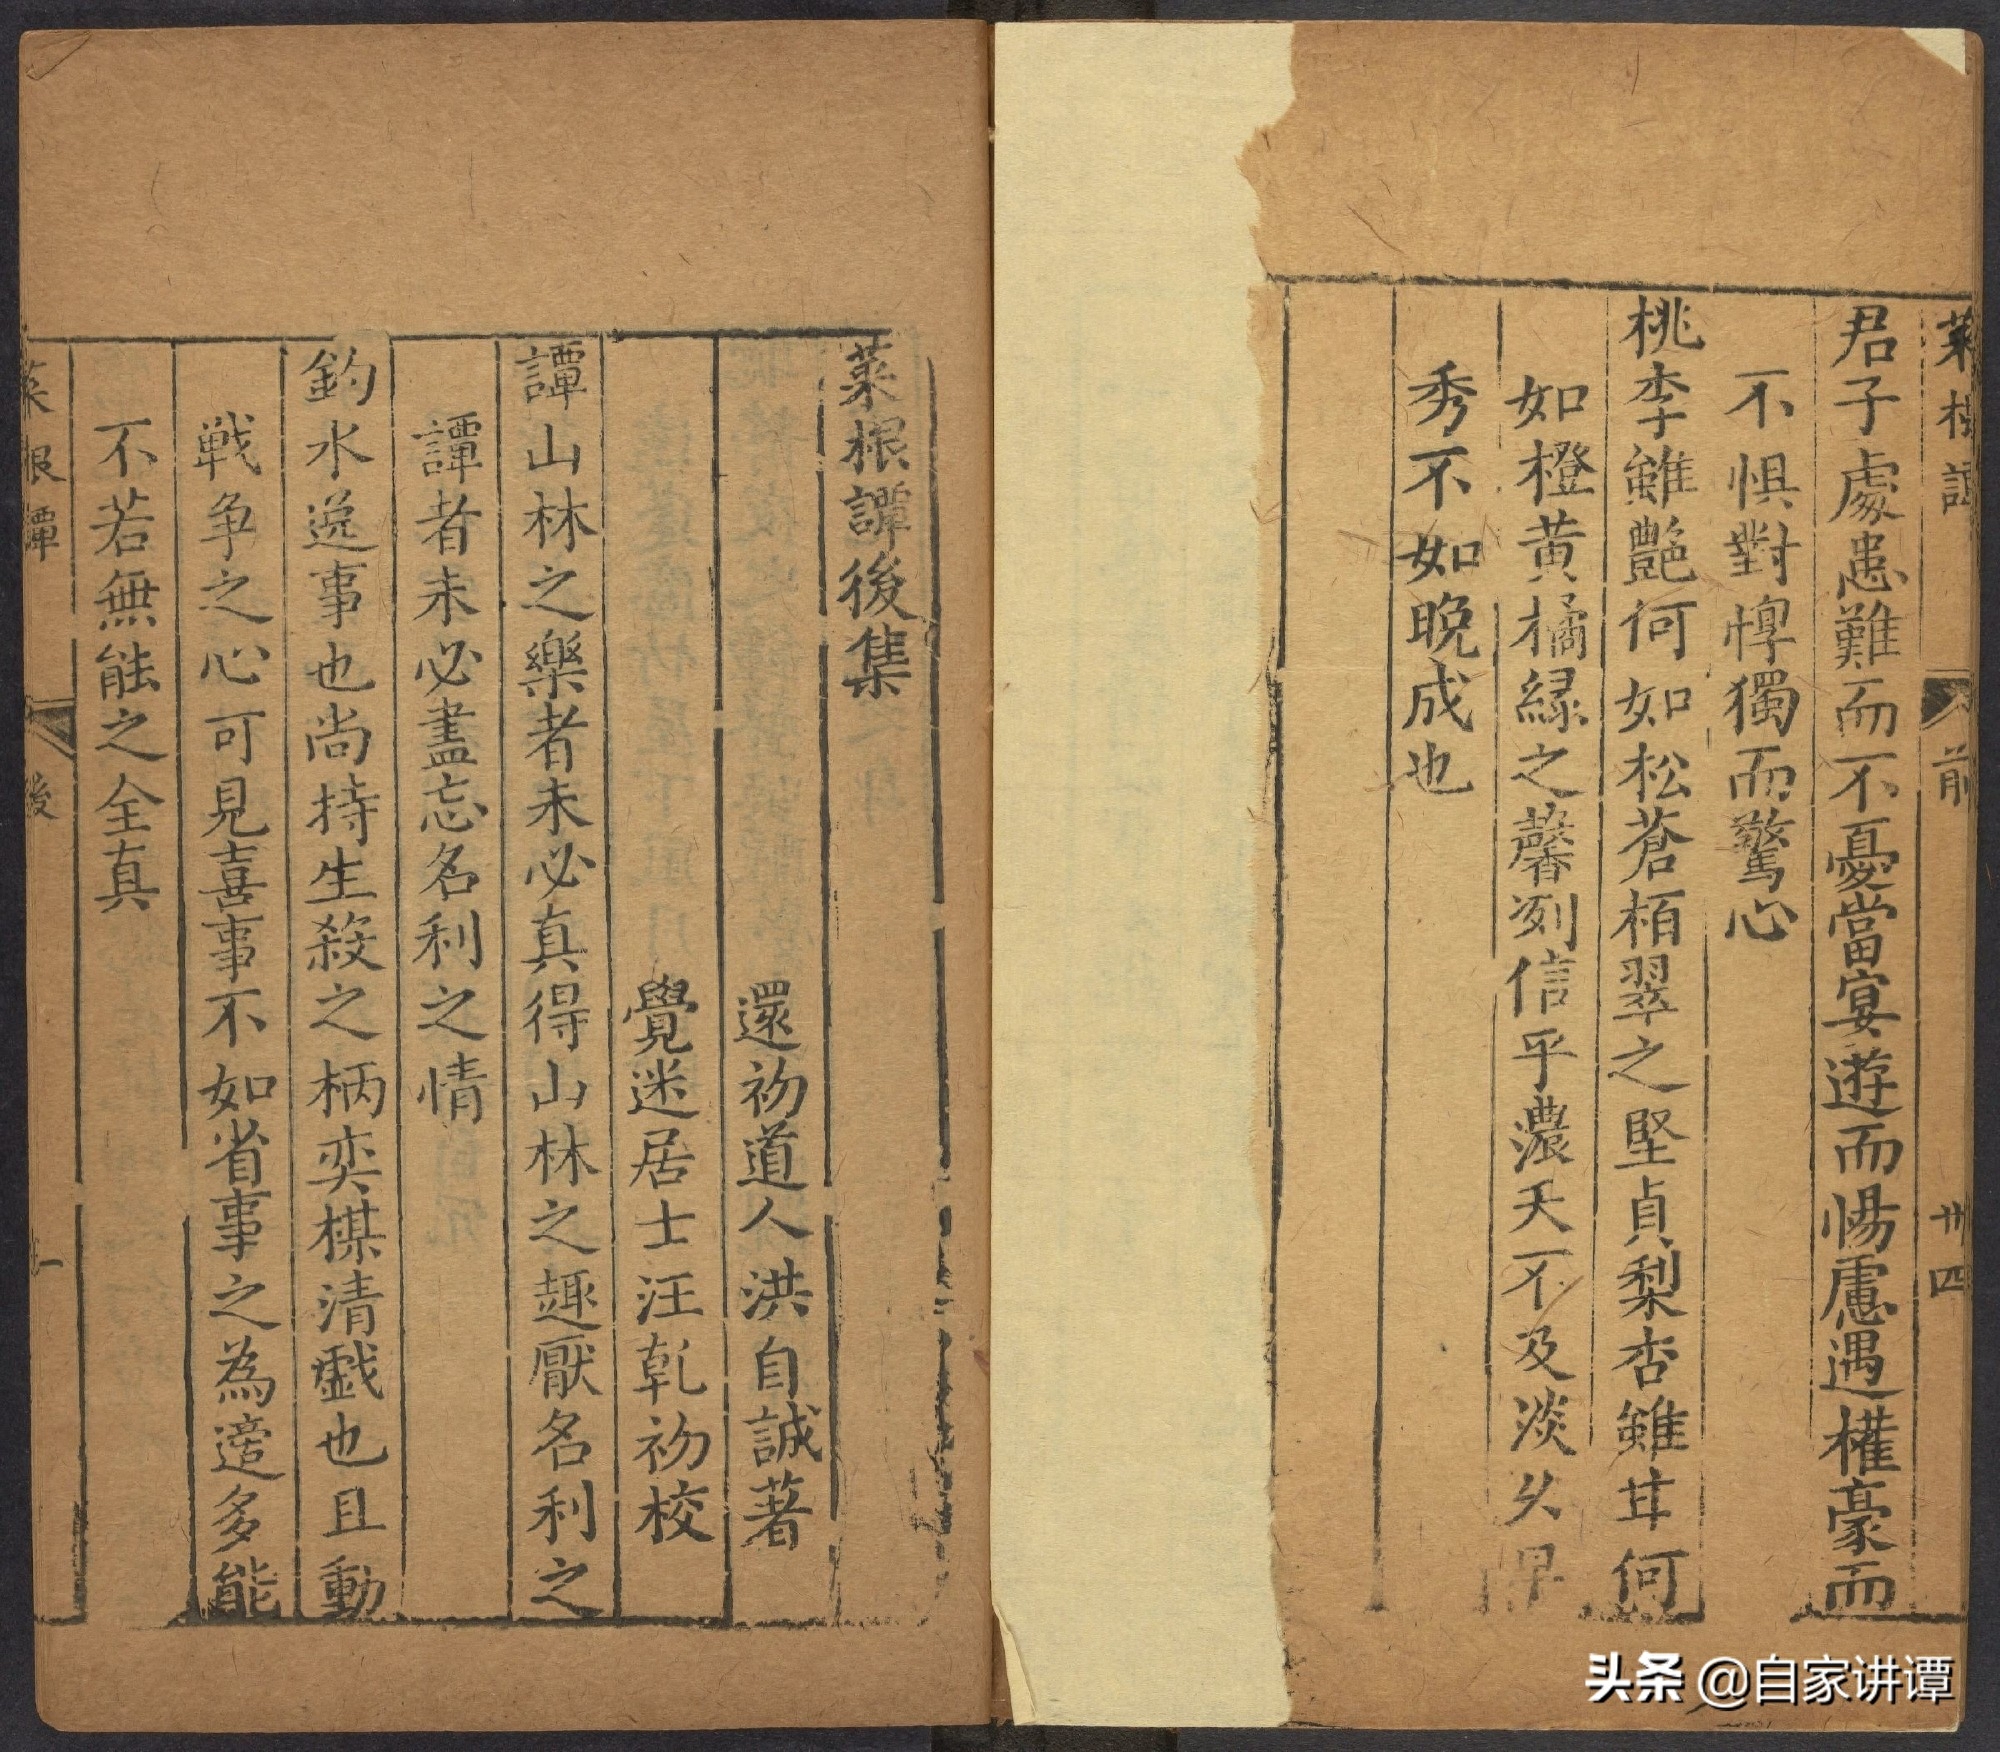 菜根譚
前
廿四
君子處患難而不憂當宴遊而惕慮遇權豪而
不惧對惸獨而驚心
桃李雖艷何如松蒼栢翠之堅貞梨杏雖甘何
如橙黄橘緑之馨冽信乎濃夭不及淡久早
秀不如晚成也
菜根譚後集
還初道人洪自誠著
覺迷居士汪乹初校
譚山林之樂者未必真得山林之趣厭名利之
譚者未必盡忘名利之情
釣水逸事也尚持生殺之柄奕棋清戯也且動
戦争之心可見喜事不如省事之為適多能
不若無能之全真
菜根譚
後
一
头条 @自家讲谭